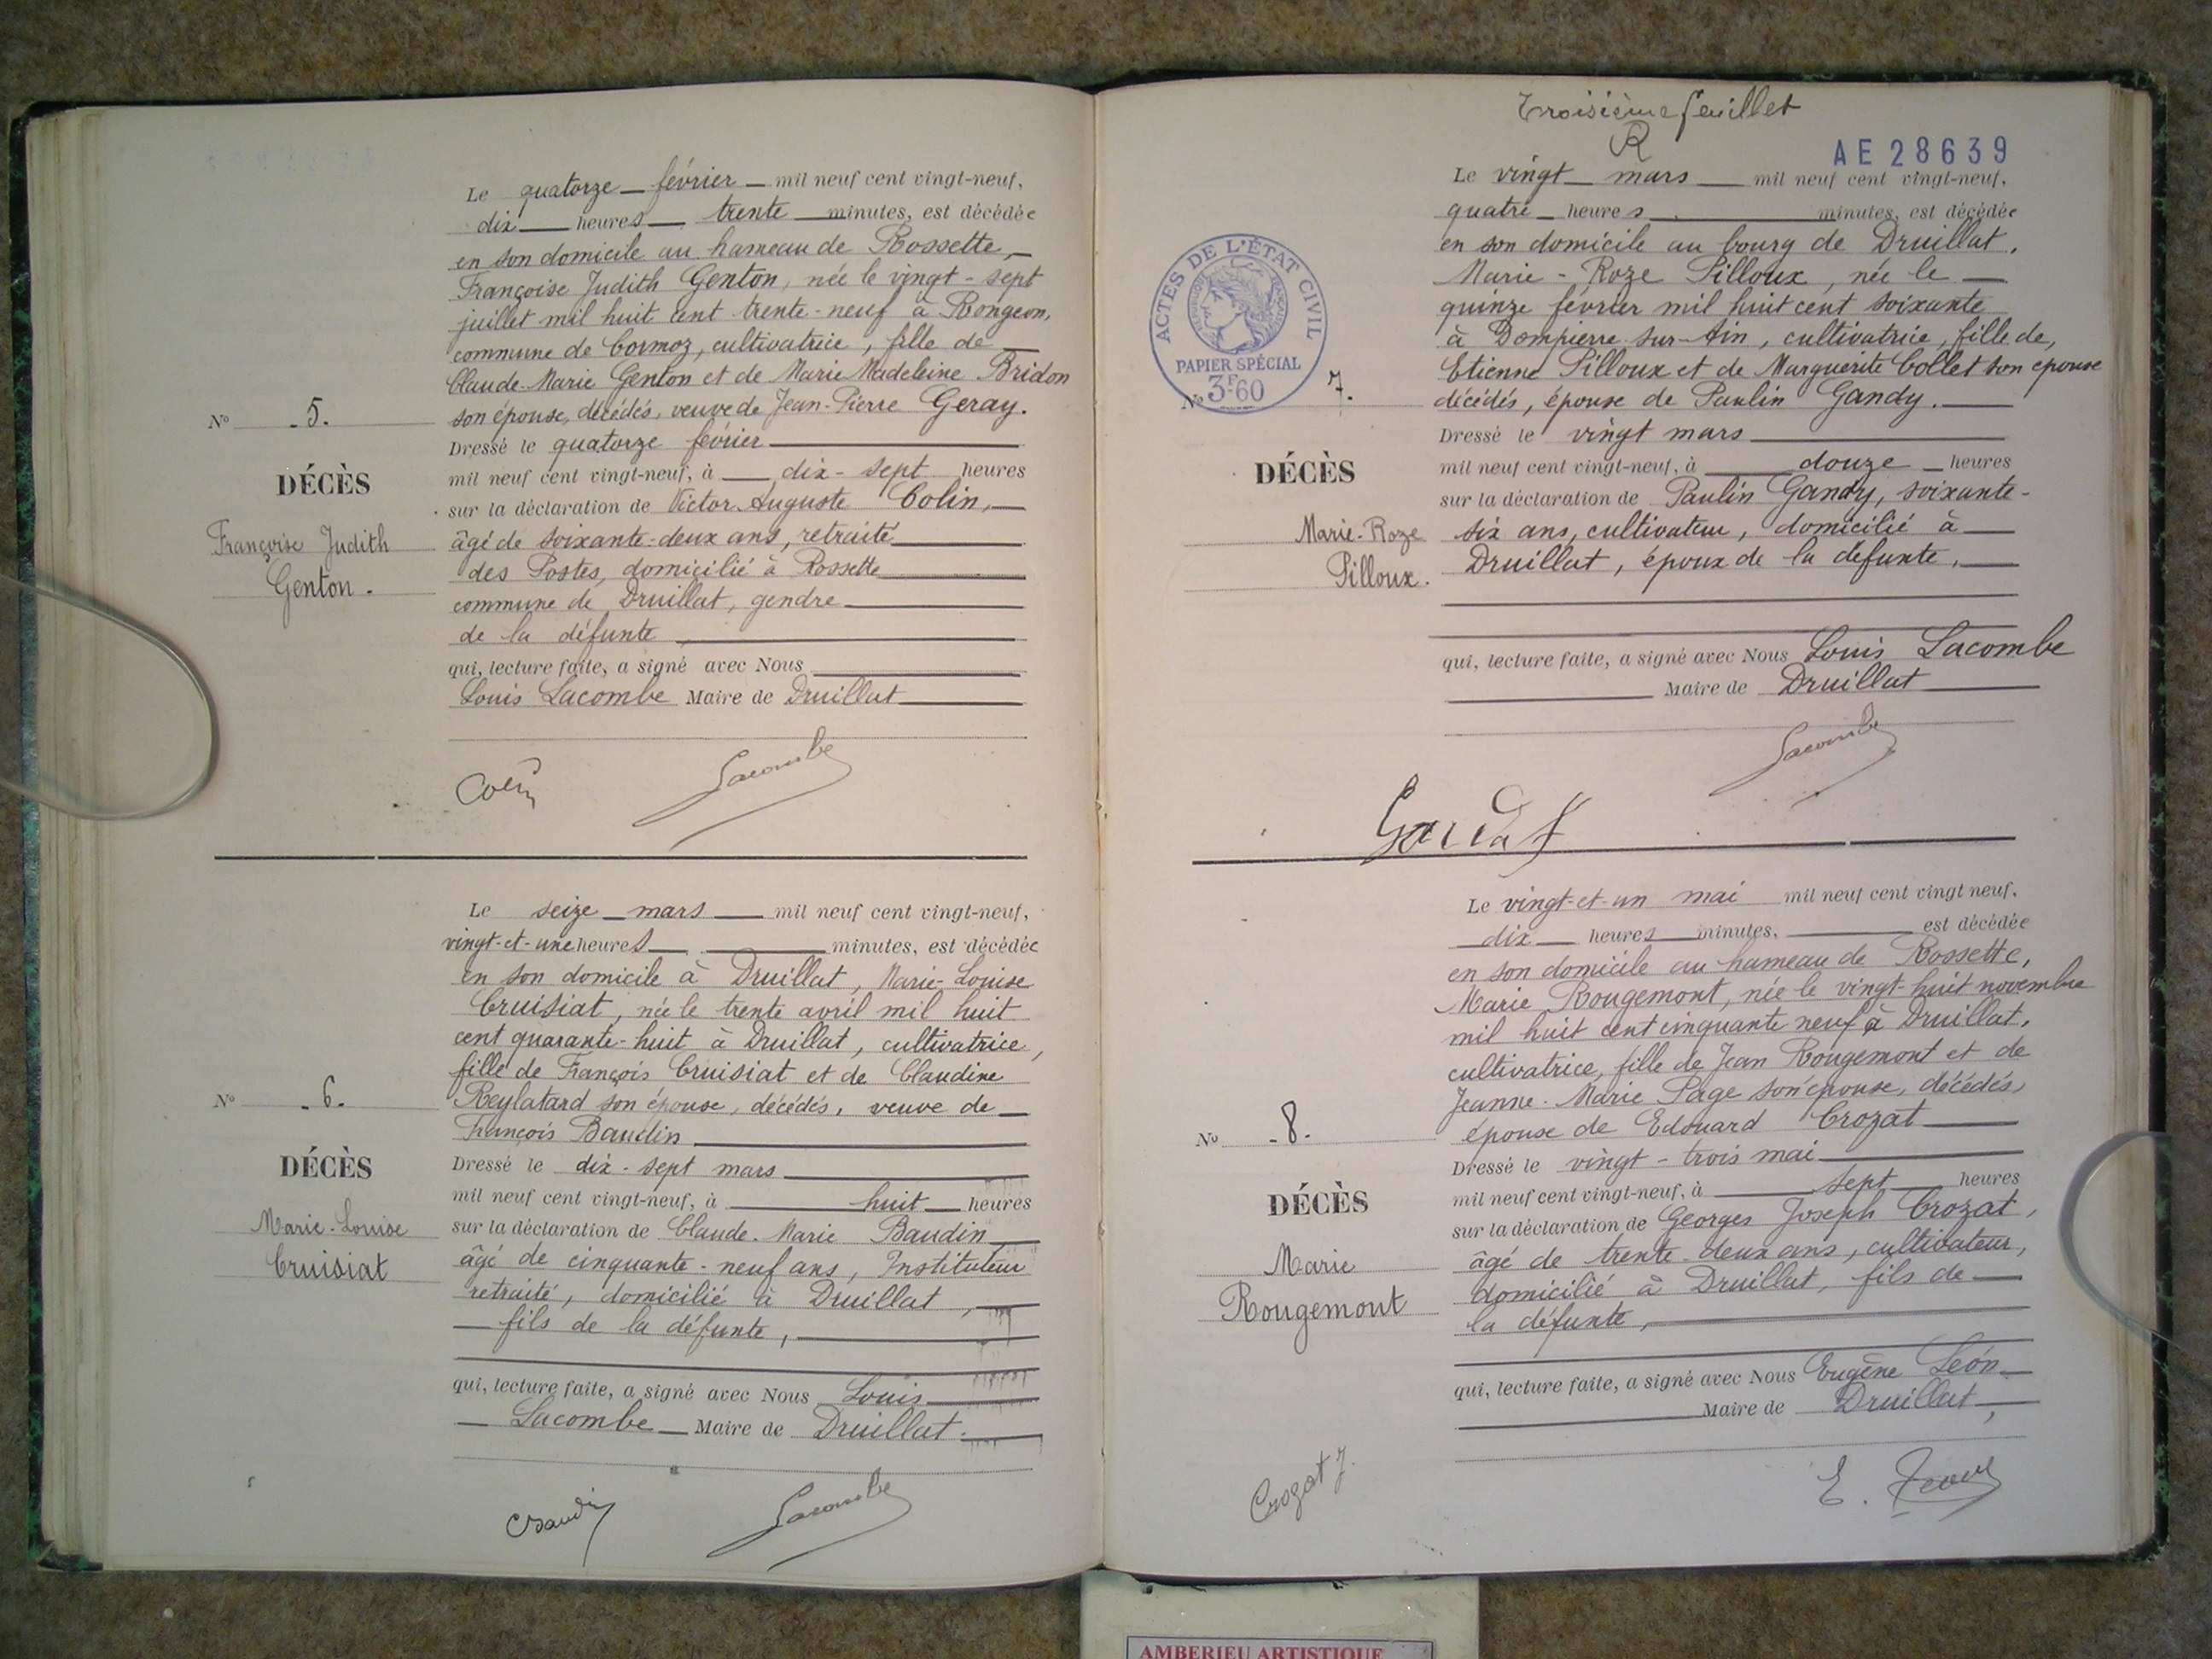 Le quatorze février mil neuf cent vingt-neuf,
dix heures trente minutes, est décédée
en son domicile au hameau de Rossette,
Françoise Judith Genton, née le vingt-sept
juillet mil huit cent trente-neuf à Rongeon,
commune de Cormoz, cultivatrice, fille de
Claude-Marie Genton et de Marie Madeleine Bridon
son épouse, décédés, veuve de Jean-Pierre Geray.
Nº 5.
Dressé le quatorze février
mil neuf cent vingt-neuf, à dix-sept heures
DÉCÈS
sur la déclaration de Victor-Auguste Colin,
Françoise Judith
Genton.
âgé de soixante-deux ans, retraité
des Postes, domicilié à Rossette
commune de Druillat, gendre
de la défunte,
qui, lecture faite, a signé avec Nous
Louis Lacombe Maire de Druillat
Colin
Lacombe
Le seize mars mil neuf cent vingt-neuf,
vingt-et-une heures minutes, est décédée
en son domicile à Druillat, Marie-Louise
Cruisiat, née le trente avril mil huit
cent quarante-huit à Druillat, cultivatrice,
fille de François Cruisiat et de Claudine
Nº 6.
Reylatard son épouse, décédés, veuve de
François Baudin
DÉCÈS
Dressé le dix-sept mars
mil neuf cent vingt-neuf, à huit heures
Marie-Louise
Cruisiat
sur la déclaration de Claude-Marie Baudin
âgé de cinquante-neuf ans, Instituteur
retraité, domicilié à Druillat,
fils de la défunte,
qui, lecture faite, a signé avec Nous Louis
Lacombe Maire de Druillat.
Baudin
Lacombe
Troisième feuillet
AE28639
Le vingt mars mil neuf cent vingt-neuf,
quatre heures minutes, est décédée
en son domicile au bourg de Druillat,
Marie-Roze Pilloux, née le
quinze février mil huit cent soixante
à Dompierre-sur-Ain, cultivatrice, fille de,
Etienne Pilloux et de Marguerite Collet son epouse
décédés, épouse de Paulin Gandy.
ACTES DE L'ÉTAT CIVIL
PAPIER SPÉCIAL
3F60
Nº 7.
DÉCÈS
Marie-Roze
Pilloux.
Dressé le vingt mars
mil neuf cent vingt-neuf, à douze heures
sur la déclaration de Paulin Gandy, soixante-
six ans, cultivateur, domicilié à
Druillat, époux de la défunte,
qui, lecture faite, a signé avec Nous Louis Lacombe
Maire de Druillat
Lacombe
Le vingt-et-un mai mil neuf cent vingt neuf,
dix heures minutes, est décédée
en son domicile au hameau de Rossette,
Marie Rougemont, née le vingt-huit novembre
mil huit cent cinquante neuf à Druillat,
cultivatrice, fille de Jean Rougemont et de
Jeanne-Marie Page son épouse, décédés,
épouse de Edouard Crozat
Nº 8.
DÉCÈS
Marie
Rougemont
Dressé le vingt-trois mai
mil neuf cent vingt-neuf, à sept heures
sur la déclaration de Georges Joseph Crozat,
âgé de trente-deux ans, cultivateur,
domicilié à Druillat, fils de
la défunte,
qui, lecture faite, a signé avec Nous Eugène Léon
Maire de Druillat,
Crozat J.
E.
AMBERIEU ARTISTIQUE